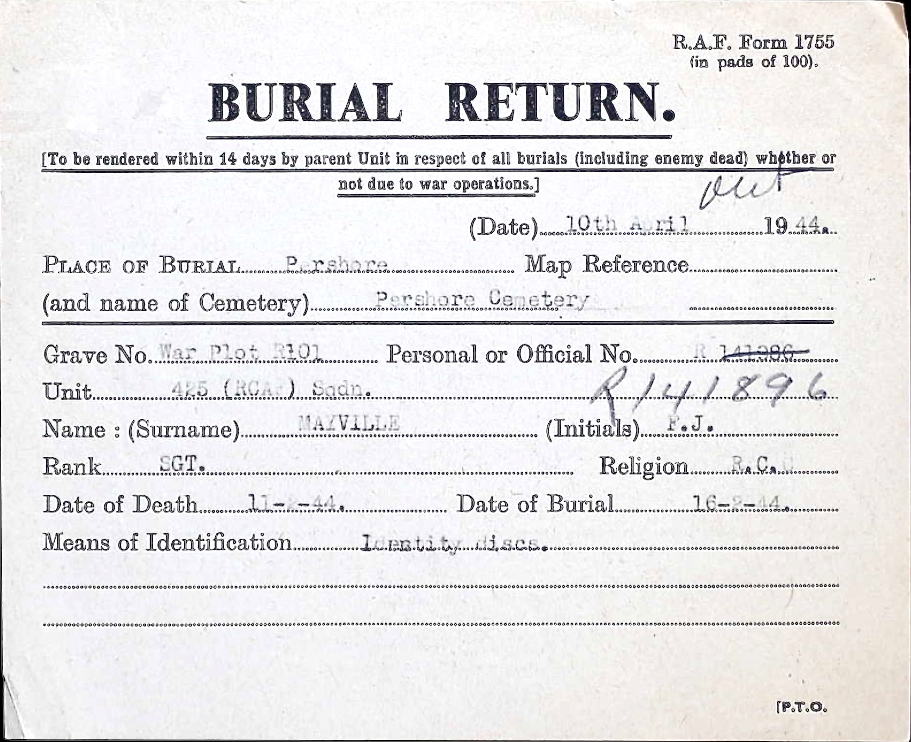 R.A.F. Form 1755
(in pads of 100).
BURIAL RETURN.
[To be rendered within 14 days by parent Unit in respect of all burials (including enemy dead) whether or
not due to war operations.]
(Date) 10th April 1944.
PLACE OF BURIAL Pershore Map Reference
(and name of Cemetery) Pershore Cemetery
Grave No. War Plot R101 Personal or Official No. R 141986
Unit 425 (RCAF) Sqdn. R141896
Name : (Surname) MAYVILLE (Initials) F.J.
Rank SGT. Religion R.C.
Date of Death 11-2-44. Date of Burial 16-2-44.
Means of Identification Identity discs.
[P.T.O.